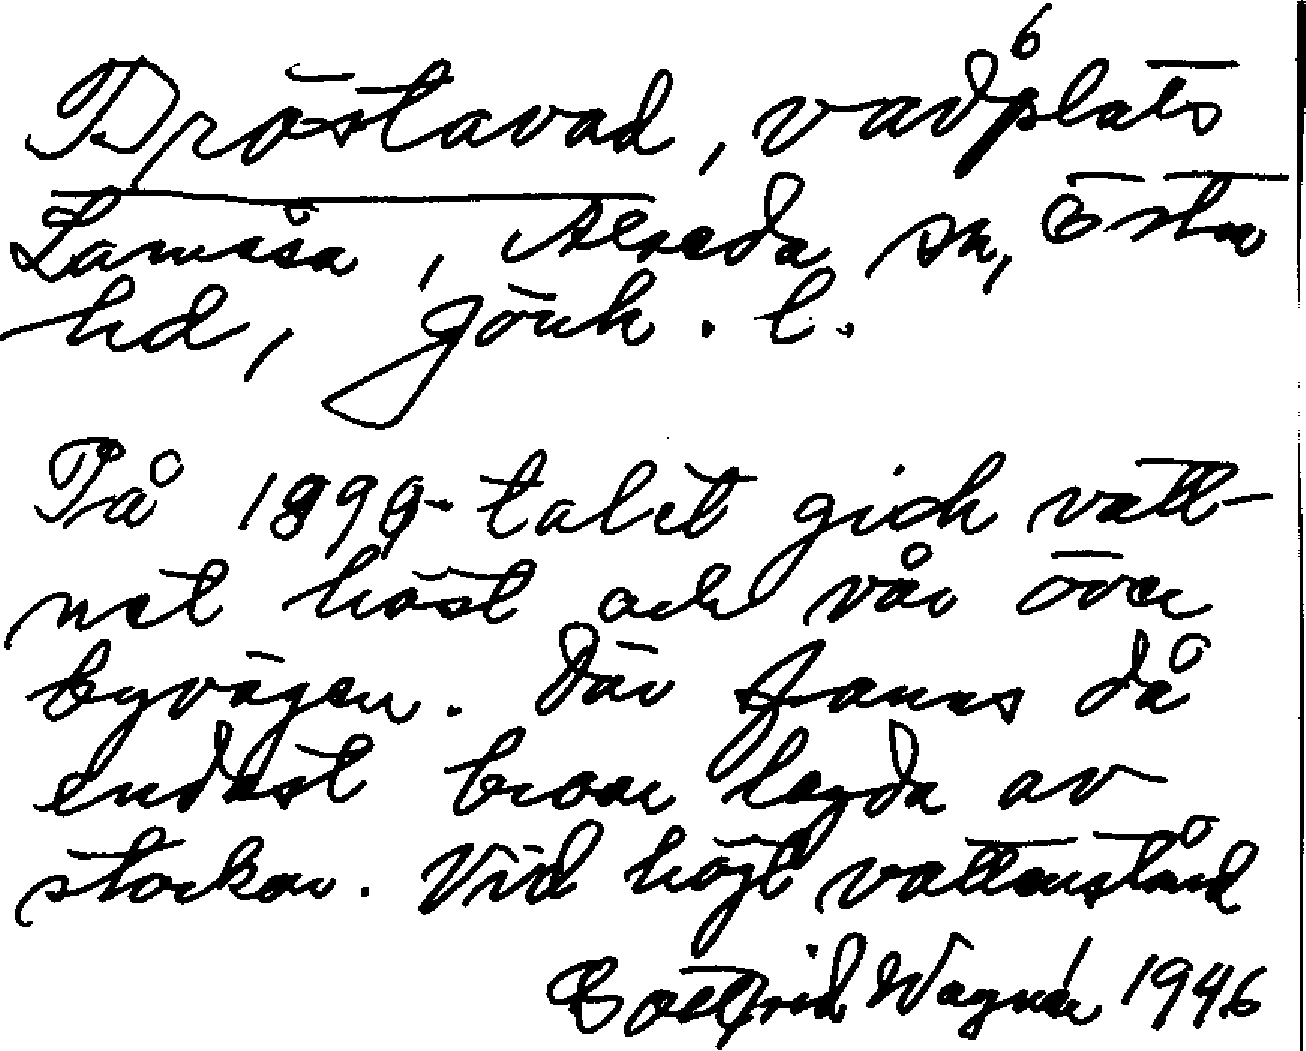 Tpröstavad, vadplats 6
Lamåsa, Alseda sn, Östra
hd, Jönk. l.
På 1890-talet gick vatt-
net höst och vår över
byvägen. Där fanns då
endast broar lagda av
stockar. Vid högt vattenstånd
Gottfrid Wagnér 1946